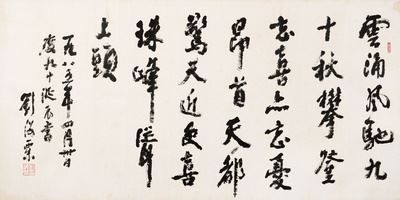 雲涌風馳九
十秋攀登
忘喜亦忘憂
昂首天都
驚天近更喜
珠峰
上頭
一九八五年四月卅日
九十誕辰書
劉海粟